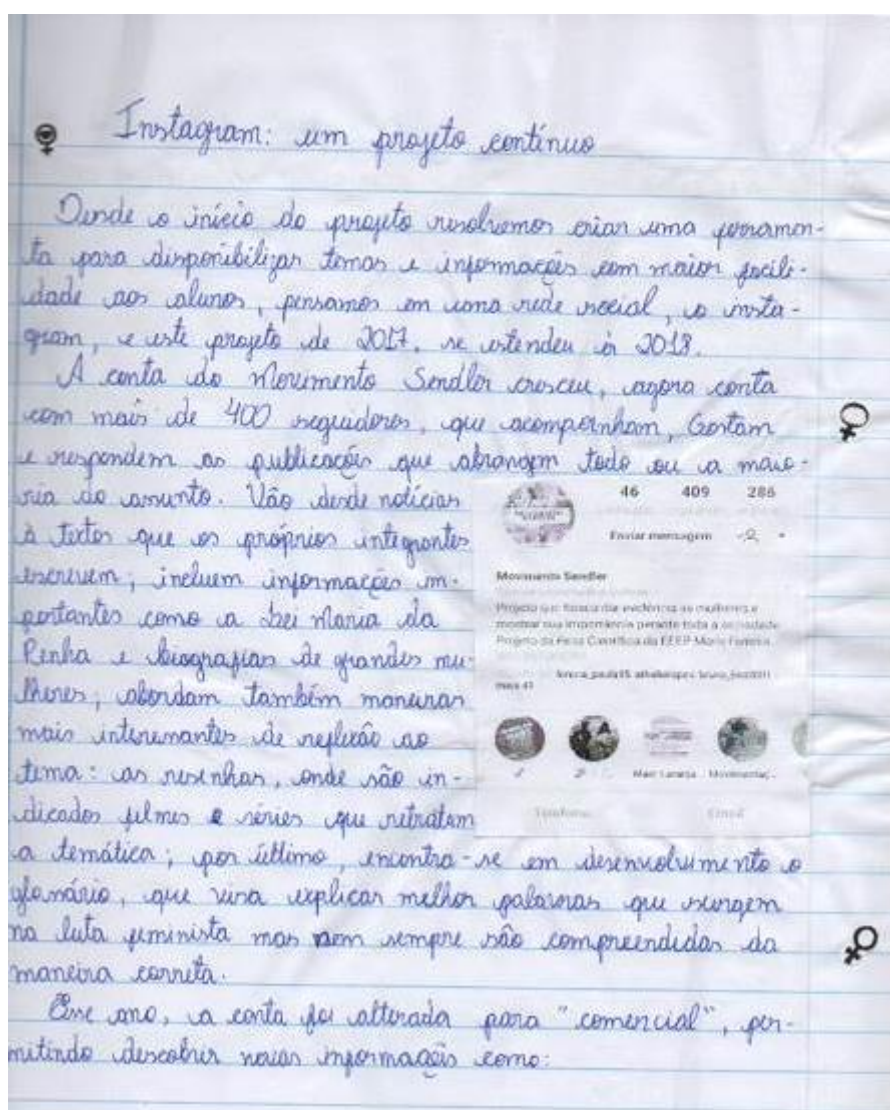 Instagram: um projeto contínuo
Desde o início do projeto resolvemos criar uma ferramen-
ta para disponibilizar temas e informações com maior facili-
dade aos alunos, pensamos em uma rede social, o insta-
gram, e este projeto de 2017, se estendeu à 2018.
A conta do Movimento Sendler cresceu, agora conta
com mais de 400 seguidores, que acompanham, Gostam
e respondem as publicações que abrangem todo ou a maio-
ria do assunto. Vão desde notícias
à textos que os próprios integrantes
escrevem; incluem informações im-
portantes como a Lei Maria da
Penha e biografias de grandes mu-
lheres; abordam também maneiras
mais interessantes de reflexão ao
tema: as resenhas, onde são in-
dicados filmes e séries que retratam
a temática; por último, encontra-se em desenvolvimento o
glossário, que visa explicar melhor palavras que surgem
na luta feminista mas nem sempre são compreendidas da
maneira correta.
Esse ano, a conta foi alterada para "comercial", per-
mitindo descobrir novas informações como:
46 409 286
Enviar mensagem
Movimento Sendler
Projeto que busca dar evidência as mulheres e
mostrar sua importância perante toda a sociedade
Projeto da Feira Científica da EEEP Mário
mais 41
Movimentaç...
Telefone Email